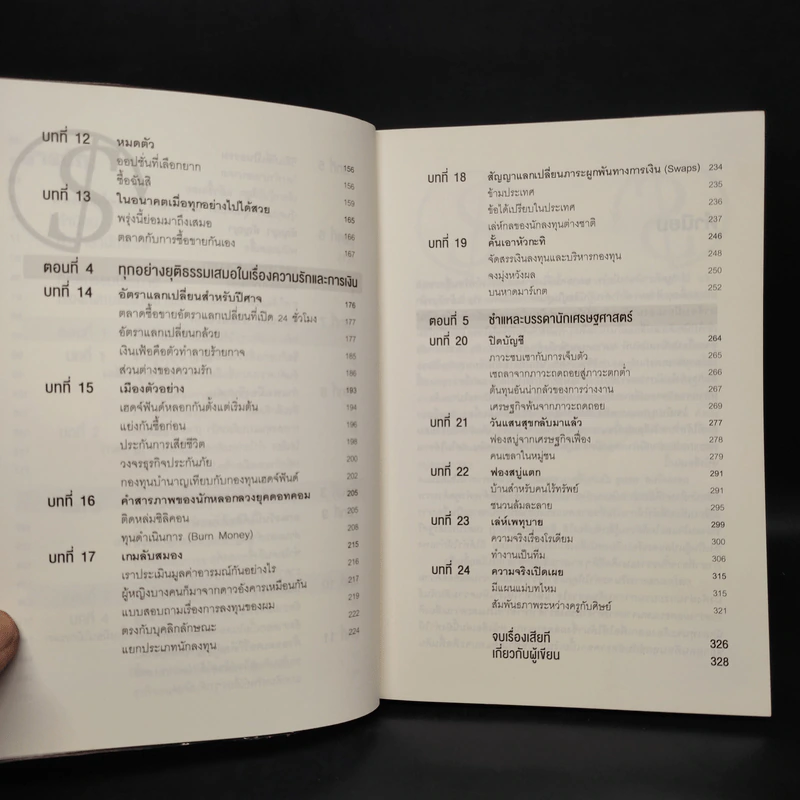 บทที่ 12 หมดตัว 156
ออปชันที่เลือกยาก 156
ซื้อฉันสิ 159
บทที่ 13 ในอนาคตเมื่อทุกอย่างไปได้สวย 165
พรุ่งนี้ย่อมมาถึงเสมอ 166
ตลาดกับการซื้อขายกันเอง 167
ตอนที่ 4 ทุกอย่างยุติธรรมเสมอในเรื่องความรักและการเงิน
บทที่ 14 อัตราแลกเปลี่ยนสำหรับปีศาจ 176
ตลาดซื้อขายอัตราแลกเปลี่ยนที่เปิด 24 ชั่วโมง 177
อัตราแลกเปลี่ยนกล้วย 177
เงินเฟ้อคือตัวทำลายร้ายกาจ 185
ส่วนต่างของความรัก 186
บทที่ 15 เมืองตัวอย่าง 193
เฮดจ์ฟันด์หลอกกันตั้งแต่เริ่มต้น 194
แย่งกันซื้อก่อน 196
ประกันการเสียชีวิต 198
วงจรธุรกิจประกันภัย 200
กองทุนบำนาญเทียบกับกองทุนเฮดจ์ฟันด์ 202
บทที่ 16 คำสารภาพของนักหลอกลวงยุคดอทคอม 205
ติดหล่มซิลิคอน 205
ทุนดำเนินการ (Burn Money) 208
บทที่ 17 เกมลับสมอง 215
เราประเมินมูลค่าอารมณ์กันอย่างไร 216
ผู้หญิงบางคนก็มาจากดาวอังคารเหมือนกัน 217
แบบสอบถามเรื่องการลงทุนของผม 219
ตรงกับบุคลิกลักษณะ 222
แยกประเภทนักลงทุน 224
บทที่ 18 สัญญาแลกเปลี่ยนภาระผูกพันทางการเงิน (Swaps) 234
ข้ามประเทศ 235
ข้อได้เปรียบในประเทศ 236
เล่ห์กลของนักลงทุนต่างชาติ 237
บทที่ 19 คั้นเอาหัวกะทิ 246
จัดสรรเงินลงทุนและบริหารกองทุน 248
จงมุ่งหวังผล 250
บนหาดมาร์เกต 252
ตอนที่ 5 ชำแหละบรรดานักเศรษฐศาสตร์
บทที่ 20 ปิดบัญชี 264
ภาวะซบเซากับการเจ็บตัว 265
เซถลาจากภาวะถดถอยสู่ภาวะตกต่ำ 266
ต้นทุนอันน่ากลัวของการว่างงาน 267
เศรษฐกิจพ้นจากภาวะถดถอย 269
บทที่ 21 วันแสนสุขกลับมาแล้ว 277
ฟองสบู่จากเศรษฐกิจเฟื่อง 278
คนเขลาในหมู่ชน 279
บทที่ 22 ฟองสบู่แตก 291
บ้านสำหรับคนไร้ทรัพย์ 291
ชนวนล้มละลาย 295
บทที่ 23 เล่ห์เพทุบาย 299
ความจริงเรื่องโรเดียม 300
ทำงานเป็นทีม 306
บทที่ 24 ความจริงเปิดเผย 315
มีแผนแม่บทไหม 315
สัมพันธภาพระหว่างครูกับศิษย์ 321
จบเรื่องเสียที 326
เกี่ยวกับผู้เขียน 328